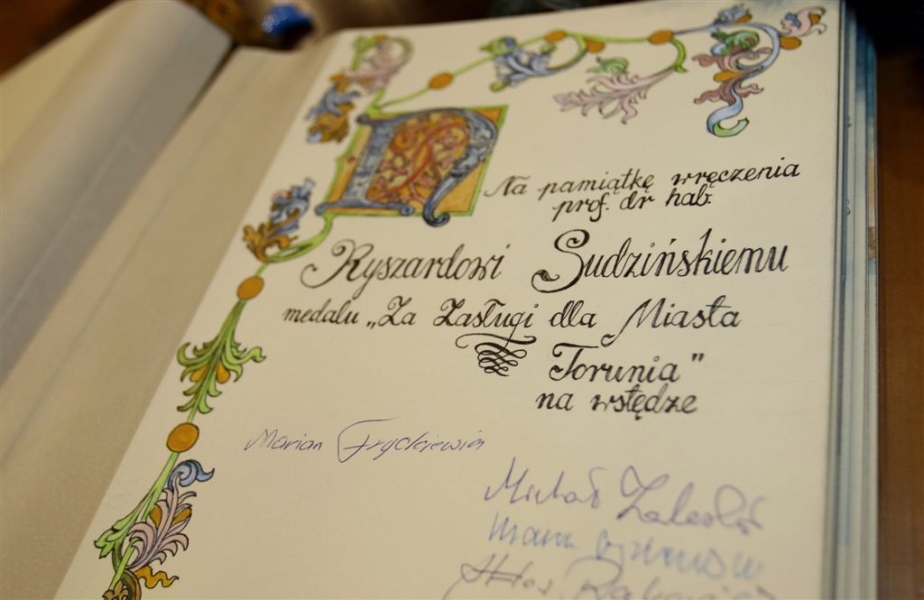 Na pamiątkę wręczenia
prof. dr hab.
Ryszardowi Sudzińskiemu
medalu „Za Zasługi dla Miasta
Torunia”
na wstędze
Marian Frąckiewicz
Michał Zaleski